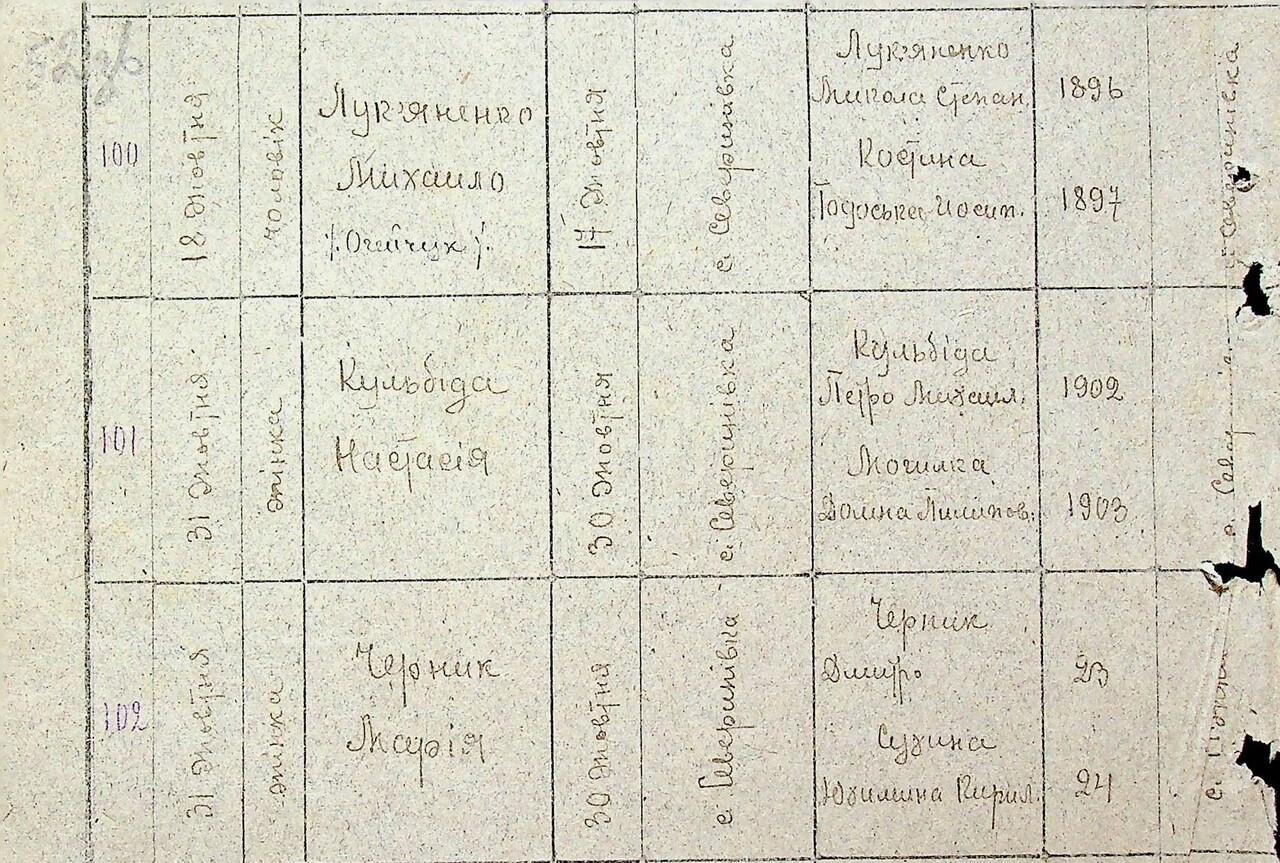 100
18 жовтня
чоловік
Лук'яненко
Михаило
/Огийчук/.
17 жовтня
с. Северинівка
Лук'яненко
Микола Степан.
Костина
Тодоська Йосип.
1896
1897
с. Северинівка
101
31 жовтня
жінка
Кульбіда
Настасія
30 жовтня
с. Северинівка
Кульбіда
Петро Михаил.
Могилка
Домна Пилипов.
1902
1903
102
31 жовтня
жінка
Черник
Марія
30 жовтня
с. Северинівка
Черник
Дмитро
Сузина
Юхимина Кирил.
23
24